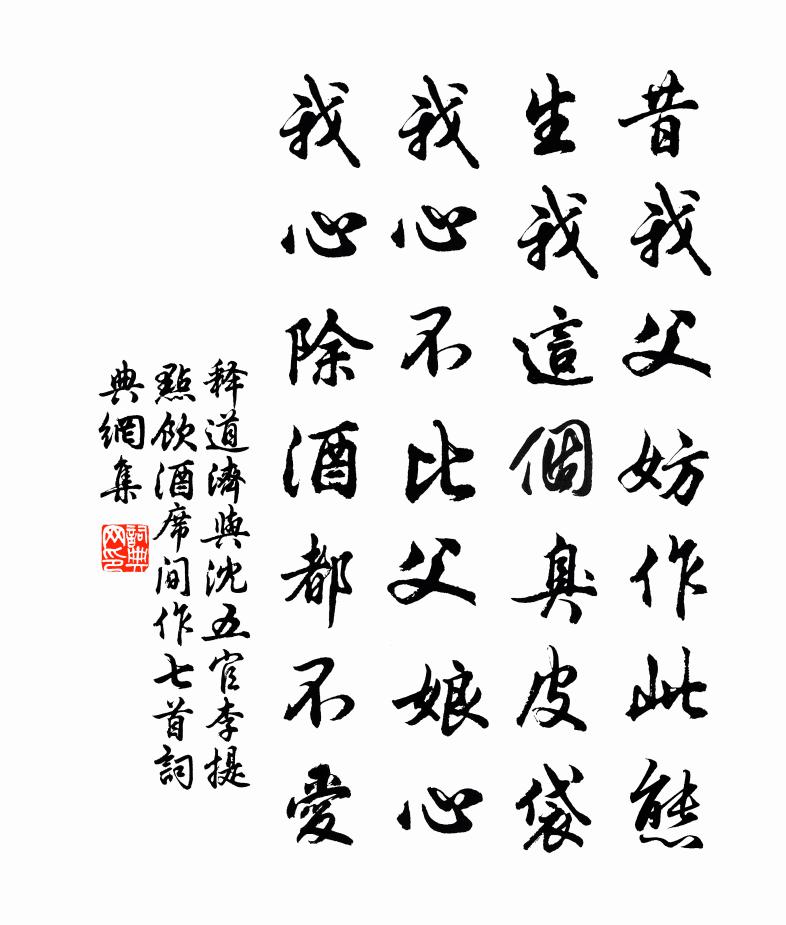 昔我父妨作此態
生我這個臭皮袋
我心不比父娘心
我心除酒都不愛
释道濟與沈五官李提
點飲酒席间作七首詞
典網集
詞典网印